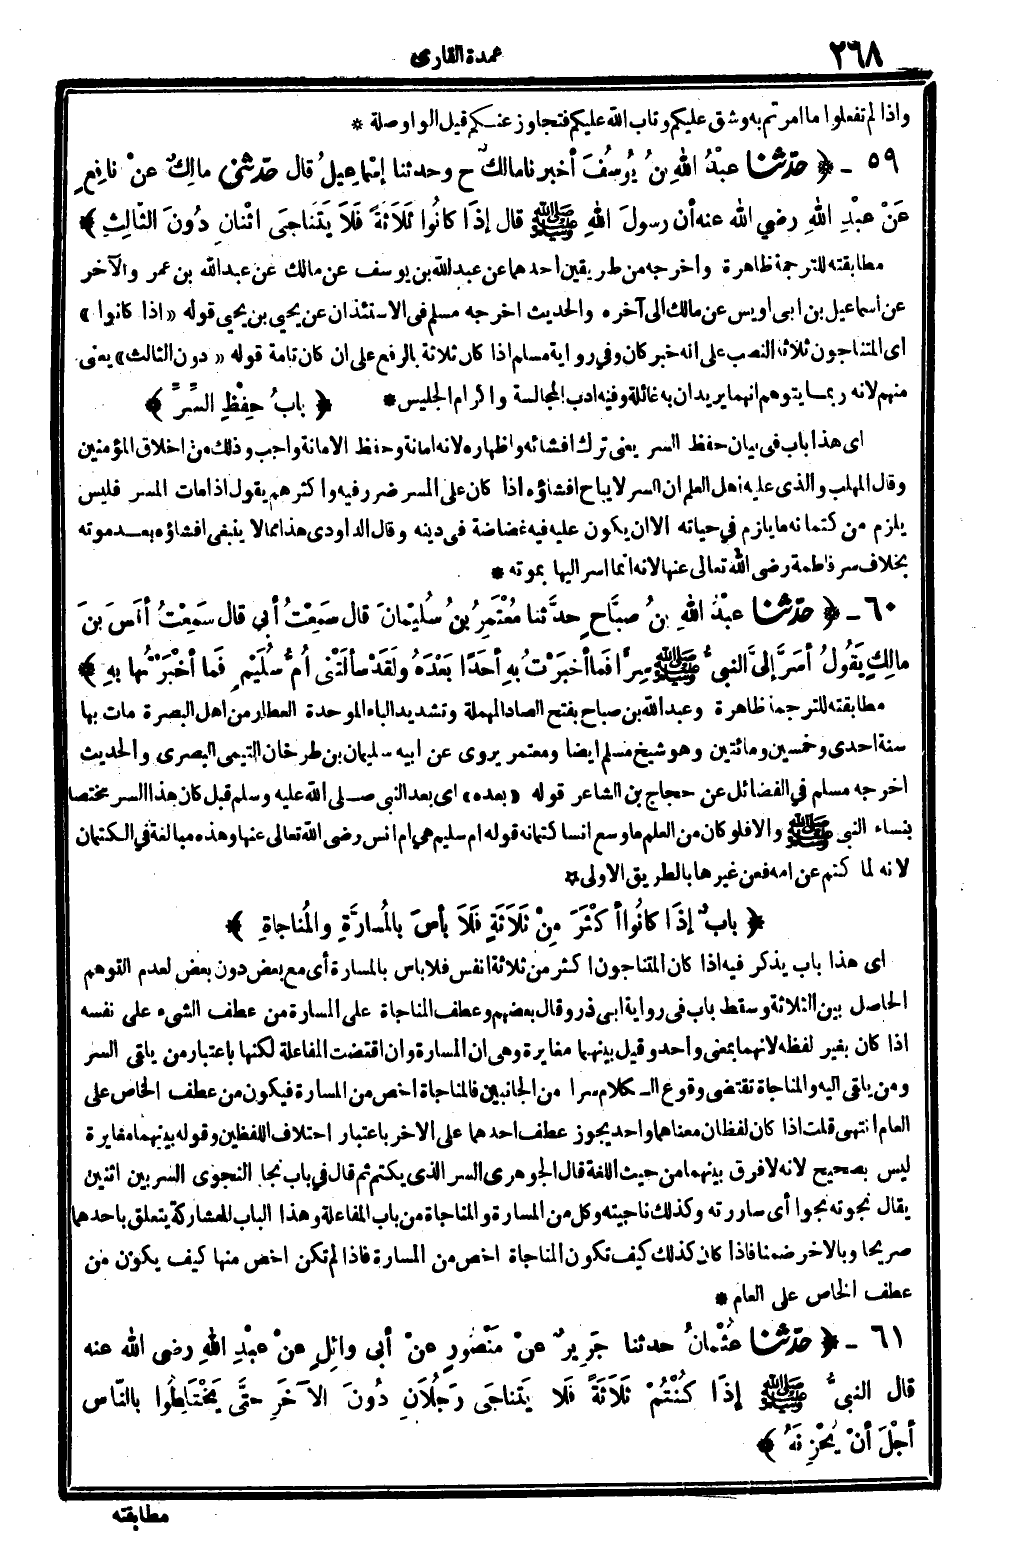 ٢٦٨
عمدة القارى
واذا لم تفعلوا ما امرتم به وشق عليكم وتاب الله عليكم فتجاوز عنكم قيل الواو صلة *
٥٩ - ﴿ حدّثنا عبْدُ اللهِ بنُ يُوسُفَ أخبرنا مالكٌ ح وحدثنا إسْماعِيلُ قال حدّثنى مالِكٌ عنْ نافِعٍ
عَنْ عبْدِ اللهِ رضي الله عنه أن رسولَ اللهِ ﷺ قال إذَا كانُوا ثَلَاثَةً فَلَا يَتَناجَى اثْنانِ دُونَ الثّالِثِ ﴾
مطابقته للترجمة ظاهرة واخرجه من طريقين احدهما عن عبدالله بن يوسف عن مالك عن عبدالله بن عمر والآخر
عن اسماعيل بن ابى اويس عن مالك الى آخره والحديث اخرجه مسلم فى الاستئذان عن يحيى بن يحيى قوله «اذا كانوا»
اى المتناجون ثلاثة النصب على انه خبر كان وفي رواية مسلم اذا كان ثلاثة بالرفع على ان كان تامة قوله «دون الثالث» يعنى
منهم لانه ربمـا يتوهم انهما يريدان به غائلة وفيه ادب المجالسة واكرام الجليس *
﴿ بابُ حِفْظِ السِّرِّ ﴾
اى هذا باب فى بيان حفظ السر يعنى ترك افشائه واظهاره لانه امانة وحفظ الامانة واجب وذلك من اخلاق المؤمنين
وقال المهلب والذى عليه اهل العلم ان السر لا يباح افشاؤه اذا كان على المسر ضرر فيه واكثرهم يقول اذا مات المسر فليس
يلزم من كتمانه ما يلزم في حياته الا ان يكون عليه فيه غضاضة فى دينه وقال الداودى هذا مما لا ينبغى افشاؤه بعد موته
بخلاف سر فاطمة رضى الله تعالى عنها لانه انما اسر اليها بموته *
٦٠ - ﴿ حدّثنا عبْدُ اللهِ بنُ صبَّاحٍ حدَّثنا مُعْتَمِرُ بنُ سُلَيْمانَ قال سَمِعْتُ أبي قال سَمِعْتُ أنَسَ بنَ
مالِكٍ يَقُولُ أسَرَّ إلىَّ النبىُّ ﷺ سِرًّا فَما أخْبَرْتُ بهِ أحَدًا بَعْدَهُ ولَقَدْ سألَتْنى أُمُّ سُلَيْمٍ فَما أخْبَرْتُها بهِ ﴾
مطابقته للترجمة ظاهرة وعبدالله بن صباح بفتح الصاد المهملة وتشديد الباء الموحدة العطار من اهل البصرة مات بها
سنة احدى وخمسين ومائتين وهو شيخ مسلم ايضا ومعتمر يروى عن ابيه سليمان بن طرخان التيمى البصرى والحديث
اخرجه مسلم في الفضائل عن حجاج بن الشاعر قوله «بعده» اى بعد النبى صلى الله عليه وسلم قيل كان هذا السر مختصا
بنساء النبى ﷺ والا فلو كان من العلم ما وسع انسا كتمانه قوله ام سليم هي ام انس رضى الله تعالى عنها وهذه مبالغة في الكتمان
لانه لما كتم عن امه فعن غيرها بالطريق الاولى *
﴿ بابٌ إذَا كانُوا أكْثَرَ مِنْ ثَلَاثَةٍ فَلَا بأسَ بالمُسارَّةِ والمُناجاةِ ﴾
اى هذا باب يذكر فيه اذا كان المتناجون اكثر من ثلاثة انفس فلا باس بالمسارة أى مع بعض دون بعض لعدم التوهم
الحاصل بين الثلاثة وسقط باب فى رواية ابى ذر وقال بعضهم وعطف المناجاة على المسارة من عطف الشىء على نفسه
اذا كان بغير لفظه لانهما بمعنى واحد وقيل بينهما مغايرة وهى ان المسارة وان اقتضت المفاعلة لكنها باعتبار من يلقى السر
ومن يلقى اليه والمناجاة تقتضى وقوع الكلام سرا من الجانبين فالمناجاة اخص من المسارة فيكون من عطف الخاص على
العام انتهى قلت اذا كان لفظان معناهما واحد يجوز عطف احدهما على الاخر باعتبار احتلاف اللفظين وقوله بينهما مغايرة
ليس بصحيح لانه لا فرق بينهما من حيث اللغة قال الجوهرى السر الذى يكتم ثم قال في باب نجا النجوى السر بين اثنين
يقال نجوته نجوا أى ساررته وكذلك ناجيته وكل من المسارة والمناجاة من باب المفاعلة وهذا الباب للمشاركة يتعلق باحدهما
صريحا وبالاخر ضمنا فاذا كان كذلك كيف تكون المناجاة اخص من المسارة فاذا لم تكن اخص منها كيف يكون من
عطف الخاص على العام *
٦١ - ﴿ حدّثنا عُثْمانُ حدثنا جَرِيرٌ عنْ مَنْصُورٍ عنْ أبى وائِلٍ عنْ عبْدِ اللهِ رضى الله عنه
قال النبىُّ ﷺ إذَا كُنْتُمْ ثَلَاثَةً فَلَا يَتَناجَى رَجُلَانِ دُونَ الآخَرِ حتَّى يَخْتَلِطُوا بالنّاسِ
أجْلَ أنْ يُحْزِنَهُ ﴾
مطابقته